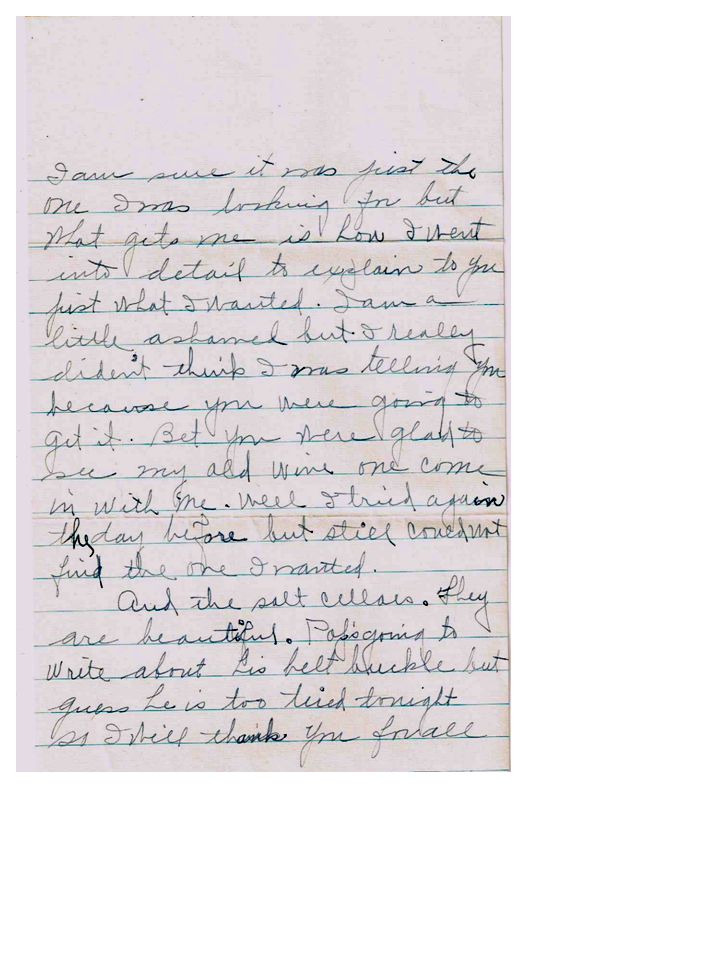 I am sure it was just the
one I was looking for but
What gets me is how I went
into detail to explain to you
just what I wanted. I am a
little ashamed but I really
dident think I was telling you
because you were going to
get it. Bet you were glad to
see my old wine one come
in with me. Well I tried again
the day before but still could not
find the one I wanted.
And the salt cellars. They
are beautiful. Pop's going to
write about his belt buckle but
guess he is too tired tonight
so I will thank you for all